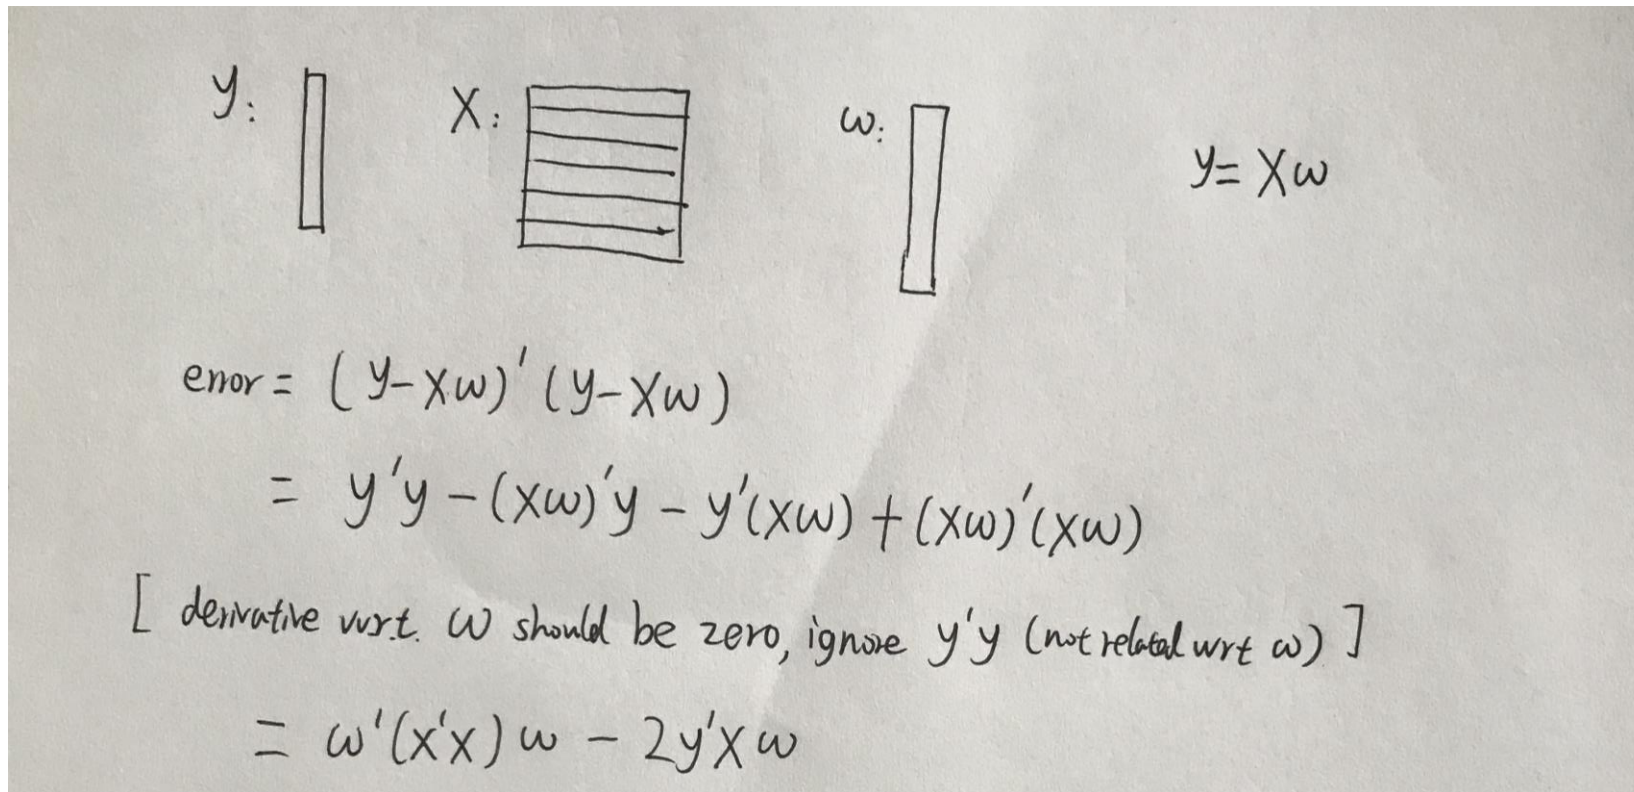 y: X: ω: y = Xω
error = (y-Xω)'(y-Xω)
= y'y - (Xω)'y - y'(Xω) + (Xω)'(Xω)
[ derivative w.r.t. ω should be zero, ignore y'y (not related wrt ω) ]
= ω'(x'x)ω - 2y'Xω